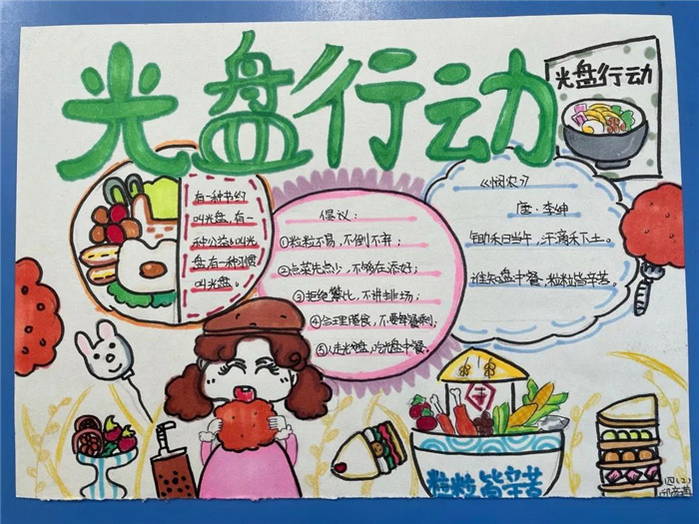 光盘行动
光盘行动
有一种节约
叫光盘,有一
种公益叫光
盘,有一种习惯
叫光盘。
倡议:
①粒粒不易,不倒不弃;
②点菜先点少,不够在添好;
③拒绝攀比,不讲排场;
④合理膳食,不要年餐剩;
⑤人走光盘,吃光盘中餐。
《悯农》
唐·李绅
锄禾日当午,汗滴禾下土。
谁知盘中餐,粒粒皆辛苦。
丰
粒粒皆辛苦
四(2)